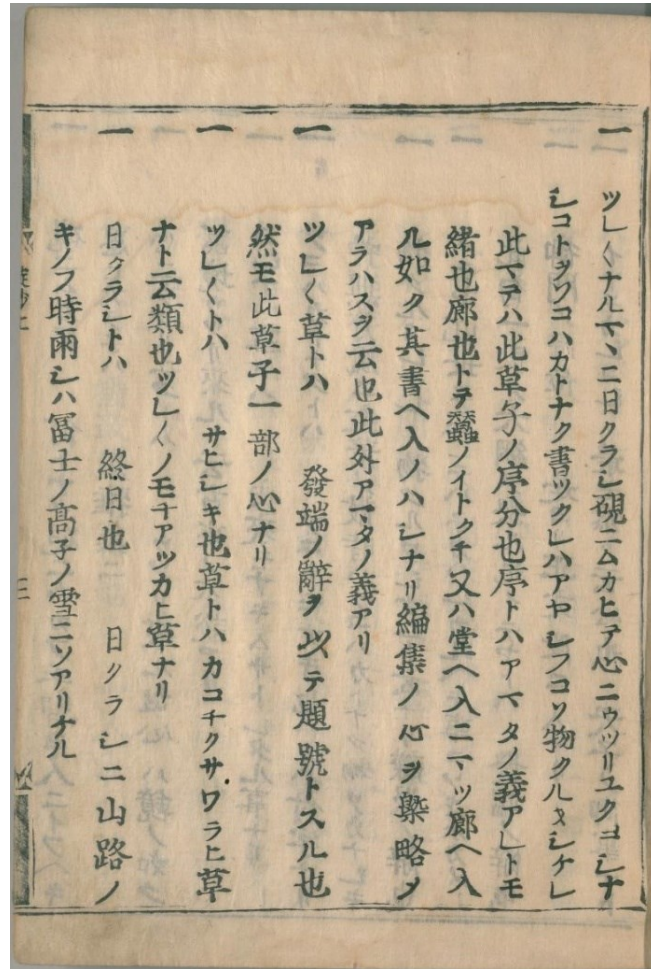 一 ツレ〱ナルマヽニ日クラシ硯ニムカヒテ心ニウツリユクヨシナ
シコトヲソコハカトナク書ツクレハアヤシフコソ物クルヲシケレ
此マテハ此草子ノ序分也序トハアマタノ義アレトモ
緒也廊也トテ蠶ノイトクチ又ハ堂ヘ入ニマツ廊ヘ入
ル如ク其書ヘ入ノハシナリ編集ノ心ヲ槩略メ
アラハスヲ云也此外アマタノ義アリ
一 ツレ〱草トハ 發端ノ辭ヲ以テ題號トスル也
然モ此草子一部ノ心ナリ
一 ツレ〱トハ サヒシキ也草トハカコチクサワラヒ草
ナト云類也ツレ〱ノモチアツカヒ草ナリ
一 日クラシトハ 終日也 日クラシニ山路ノ
キノフ時雨シハ冨士ノ髙子ノ雪ニソアリナル
三